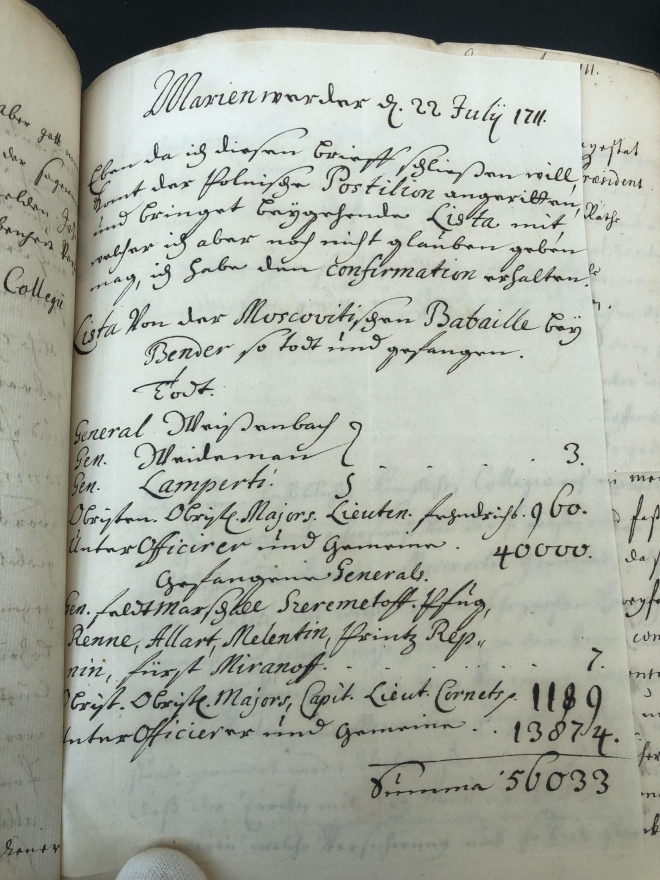 Marienwerder d. 22 Julÿ 1711.
Eben da ich diesen brieff schließen will
komt der Polnische Postilion angeritten,
und bringet beygehende Lista mit,
welcher ich aber noch nicht glauben geben
mag, ich habe den confirmation erhalten.
Lista Von der Moscovitischen Bataille beÿ
Bender so todt und gefangen.
Todt.
General Weißenbach
Gen. Weideman 3.
Gen. Lamperti.
Obristen. Obristl. Majors. Lieuten. fehndrichs. 960.
Unter Officirer und Gemeine. 40000.
Gefangene Generals.
Gen. feldtmarschlee Szeremetoff. Pflug,
Renne, Allart, Melentin, Printz Rep„
nin, fürst Miranoff. 7.
Obrist. Obristl. Majors, Capit. Lieut. Cornets. 1189
Unter Officierer und Gemeine. 13874.
Summa 56033
aber gott
der
Collegii
Præsident
Räthe